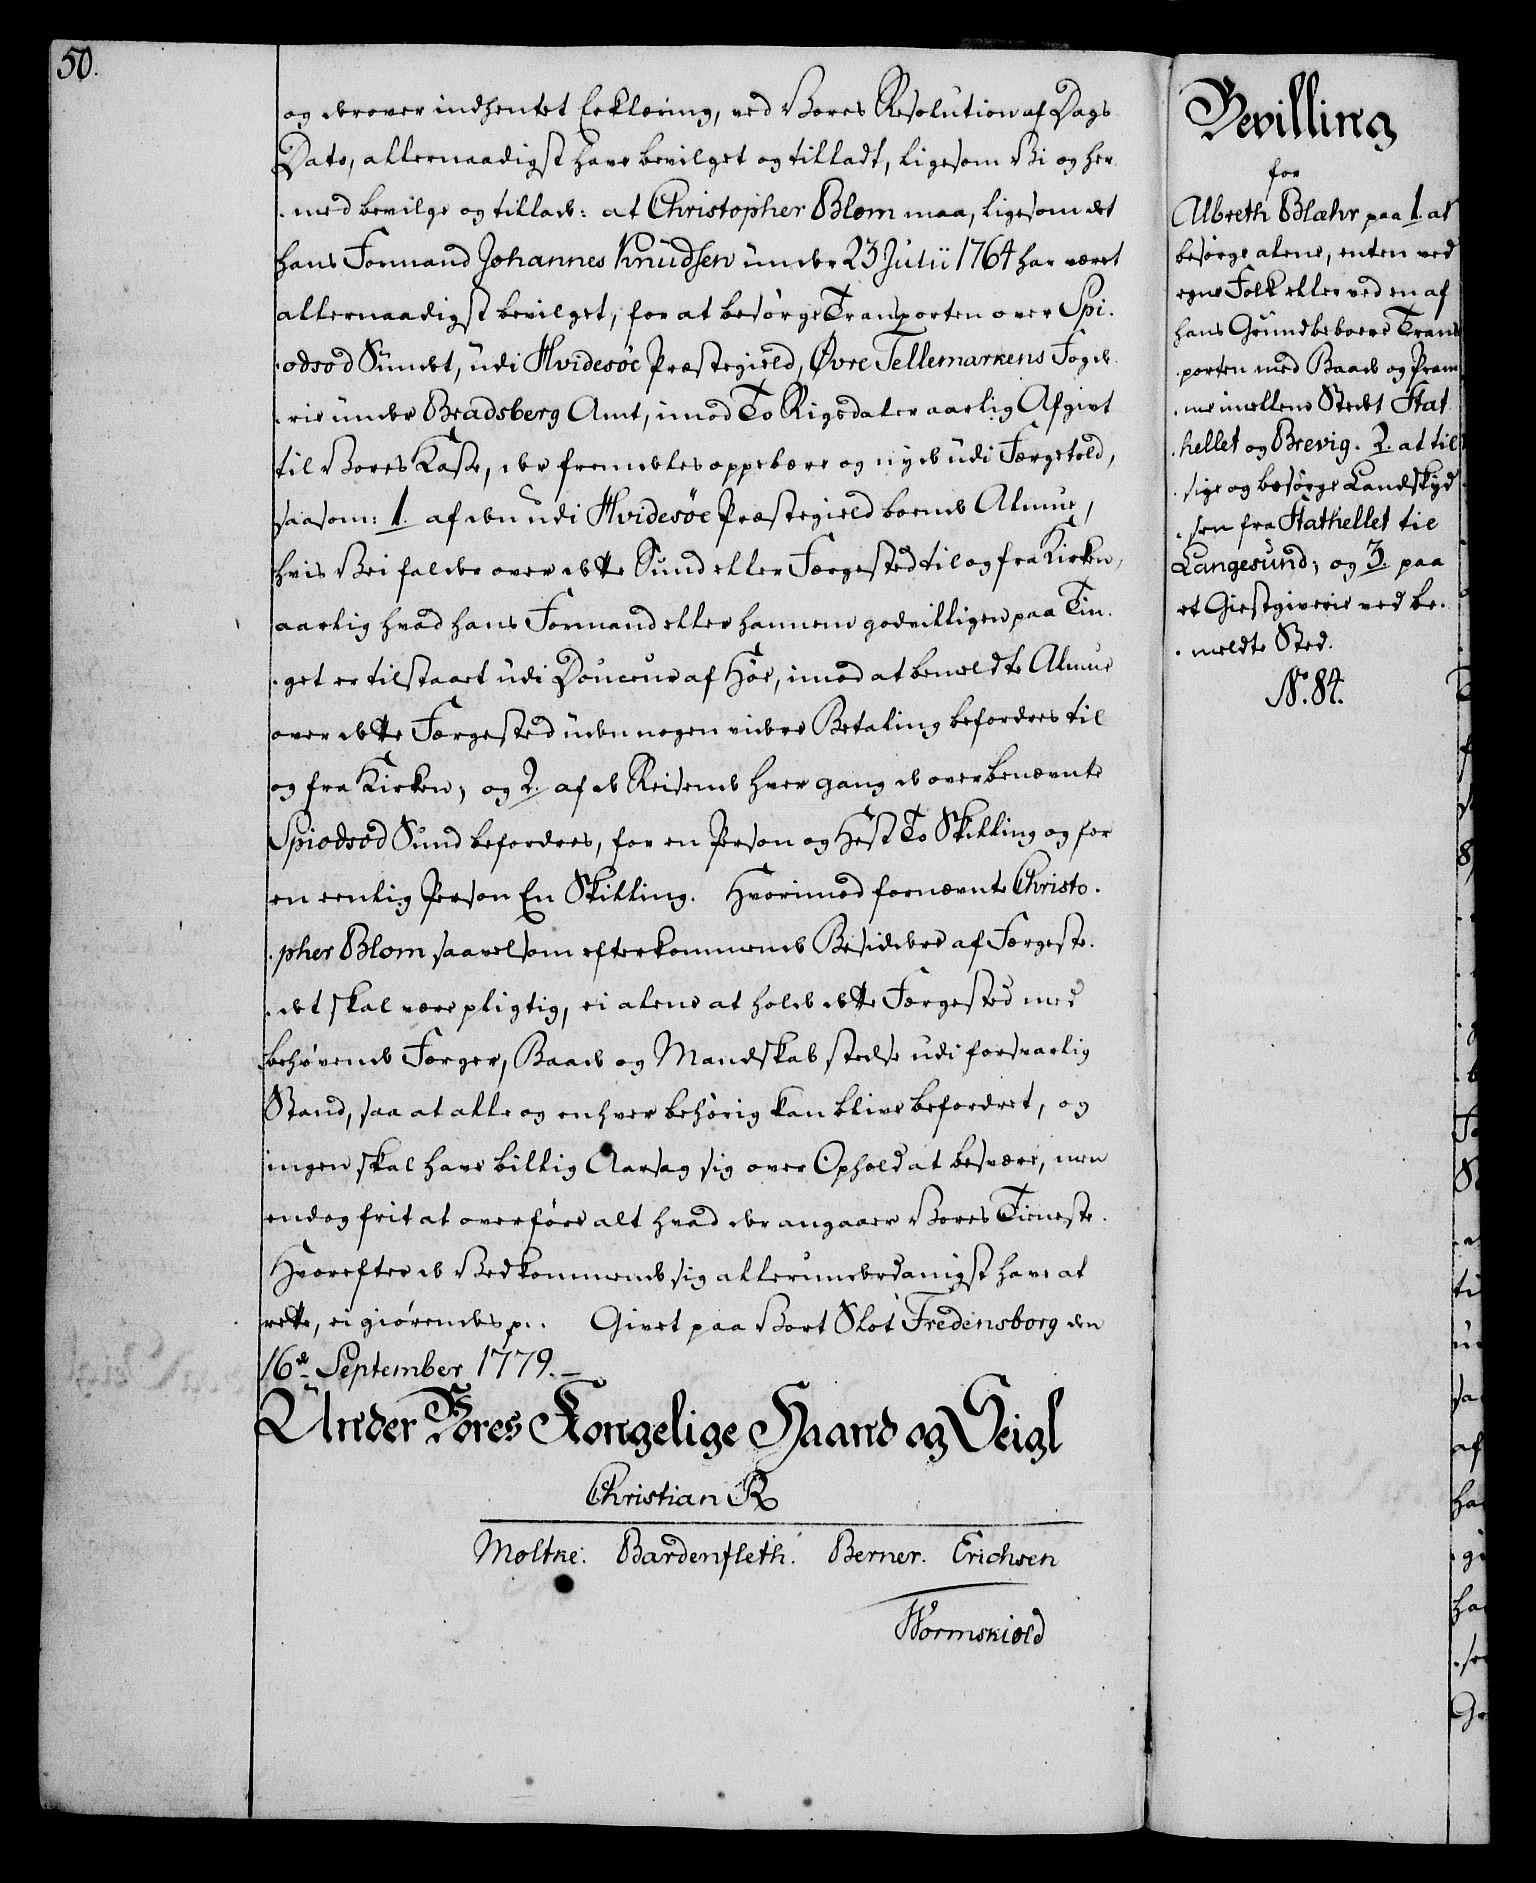 50.
og derover indhentet Erklæring, ved Vores Resolution af Dags
Dato, allernaadigst have bevilget og tilladt, ligesom Vi og her-
-med bevilge og tillade: at Christopher Blom maa, ligesom det
hans Formand Johannes Knudsen under 23 Julii 1764 har været
allernaadigst bevilget, for at besörge Transporten over Spi-
-odsöd Sundet, udi Hvidesöe Præstegield, Øvre Tellemarkens Foge-
-rie under Bradsberg Amt, imod To Rigsdaler aarlig Afgivt
til Vores Kasse, der fremdeles oppebære og nyde udi Færgetold,
saasom: 1. af den udi Hvidesöe Præstegield boende Almue,
hvis Vei falder over dette Sund eller Færgested til og fra Kirken,
aarlig hvad hans Formand eller hannem godvilligen paa Tin-
-get er tilstaaet udi Douceur af Höe, imod at bemeldte Almue
over dette Færgested uden nogen videre Betaling befordres til
og fra Kirken; og 2. af de Reisende hver gang de over benævnte
Spiodsöd Sund befordres, for en Person og Hest To Skilling og for
en eenlig Person En Skilling. Hvorimod fornævnte Christo-
-pher Blom saavelsom efterkommende Besiddere af Færgeste-
-det skal være pligtig, ei alene at holde dette Færgested med
behövende Færger, Baade og Mandskab stedse udi forsvarlig
Stand, saa at alle og enhver behörig kan blive befordret, og
ingen skal have billig Aarsag sig over Ophold at besvære, men
endog frit at overföre alt hvad der angaaer Vores Tieneste.
Hvorefter de Vedkommende sig allerunderdanigst have at
rette, ei giörendes p. Givet paa Vort Slot Fredensborg den
16de September 1779.
Under Vores Kongelige Haand og Seigl
Christian R
Moltke. Bardenfleth. Berner. Erichsen
Wormskiold
Bevilling
for
Albreth Blæhr paa 1. at
besörge alene, enten ved
egne Folk eller ved en af
hans Grundbeboere Trans
-porten med Baade og Pram
-me imellem Stedet Stat
-hellet og Brevig. 2. at til
-sige og besörge Landskyd
-sen fra Stathellet til
Langesund; og 3. paa
et Giestgiverie ved be-
-meldte Sted.
No. 84.